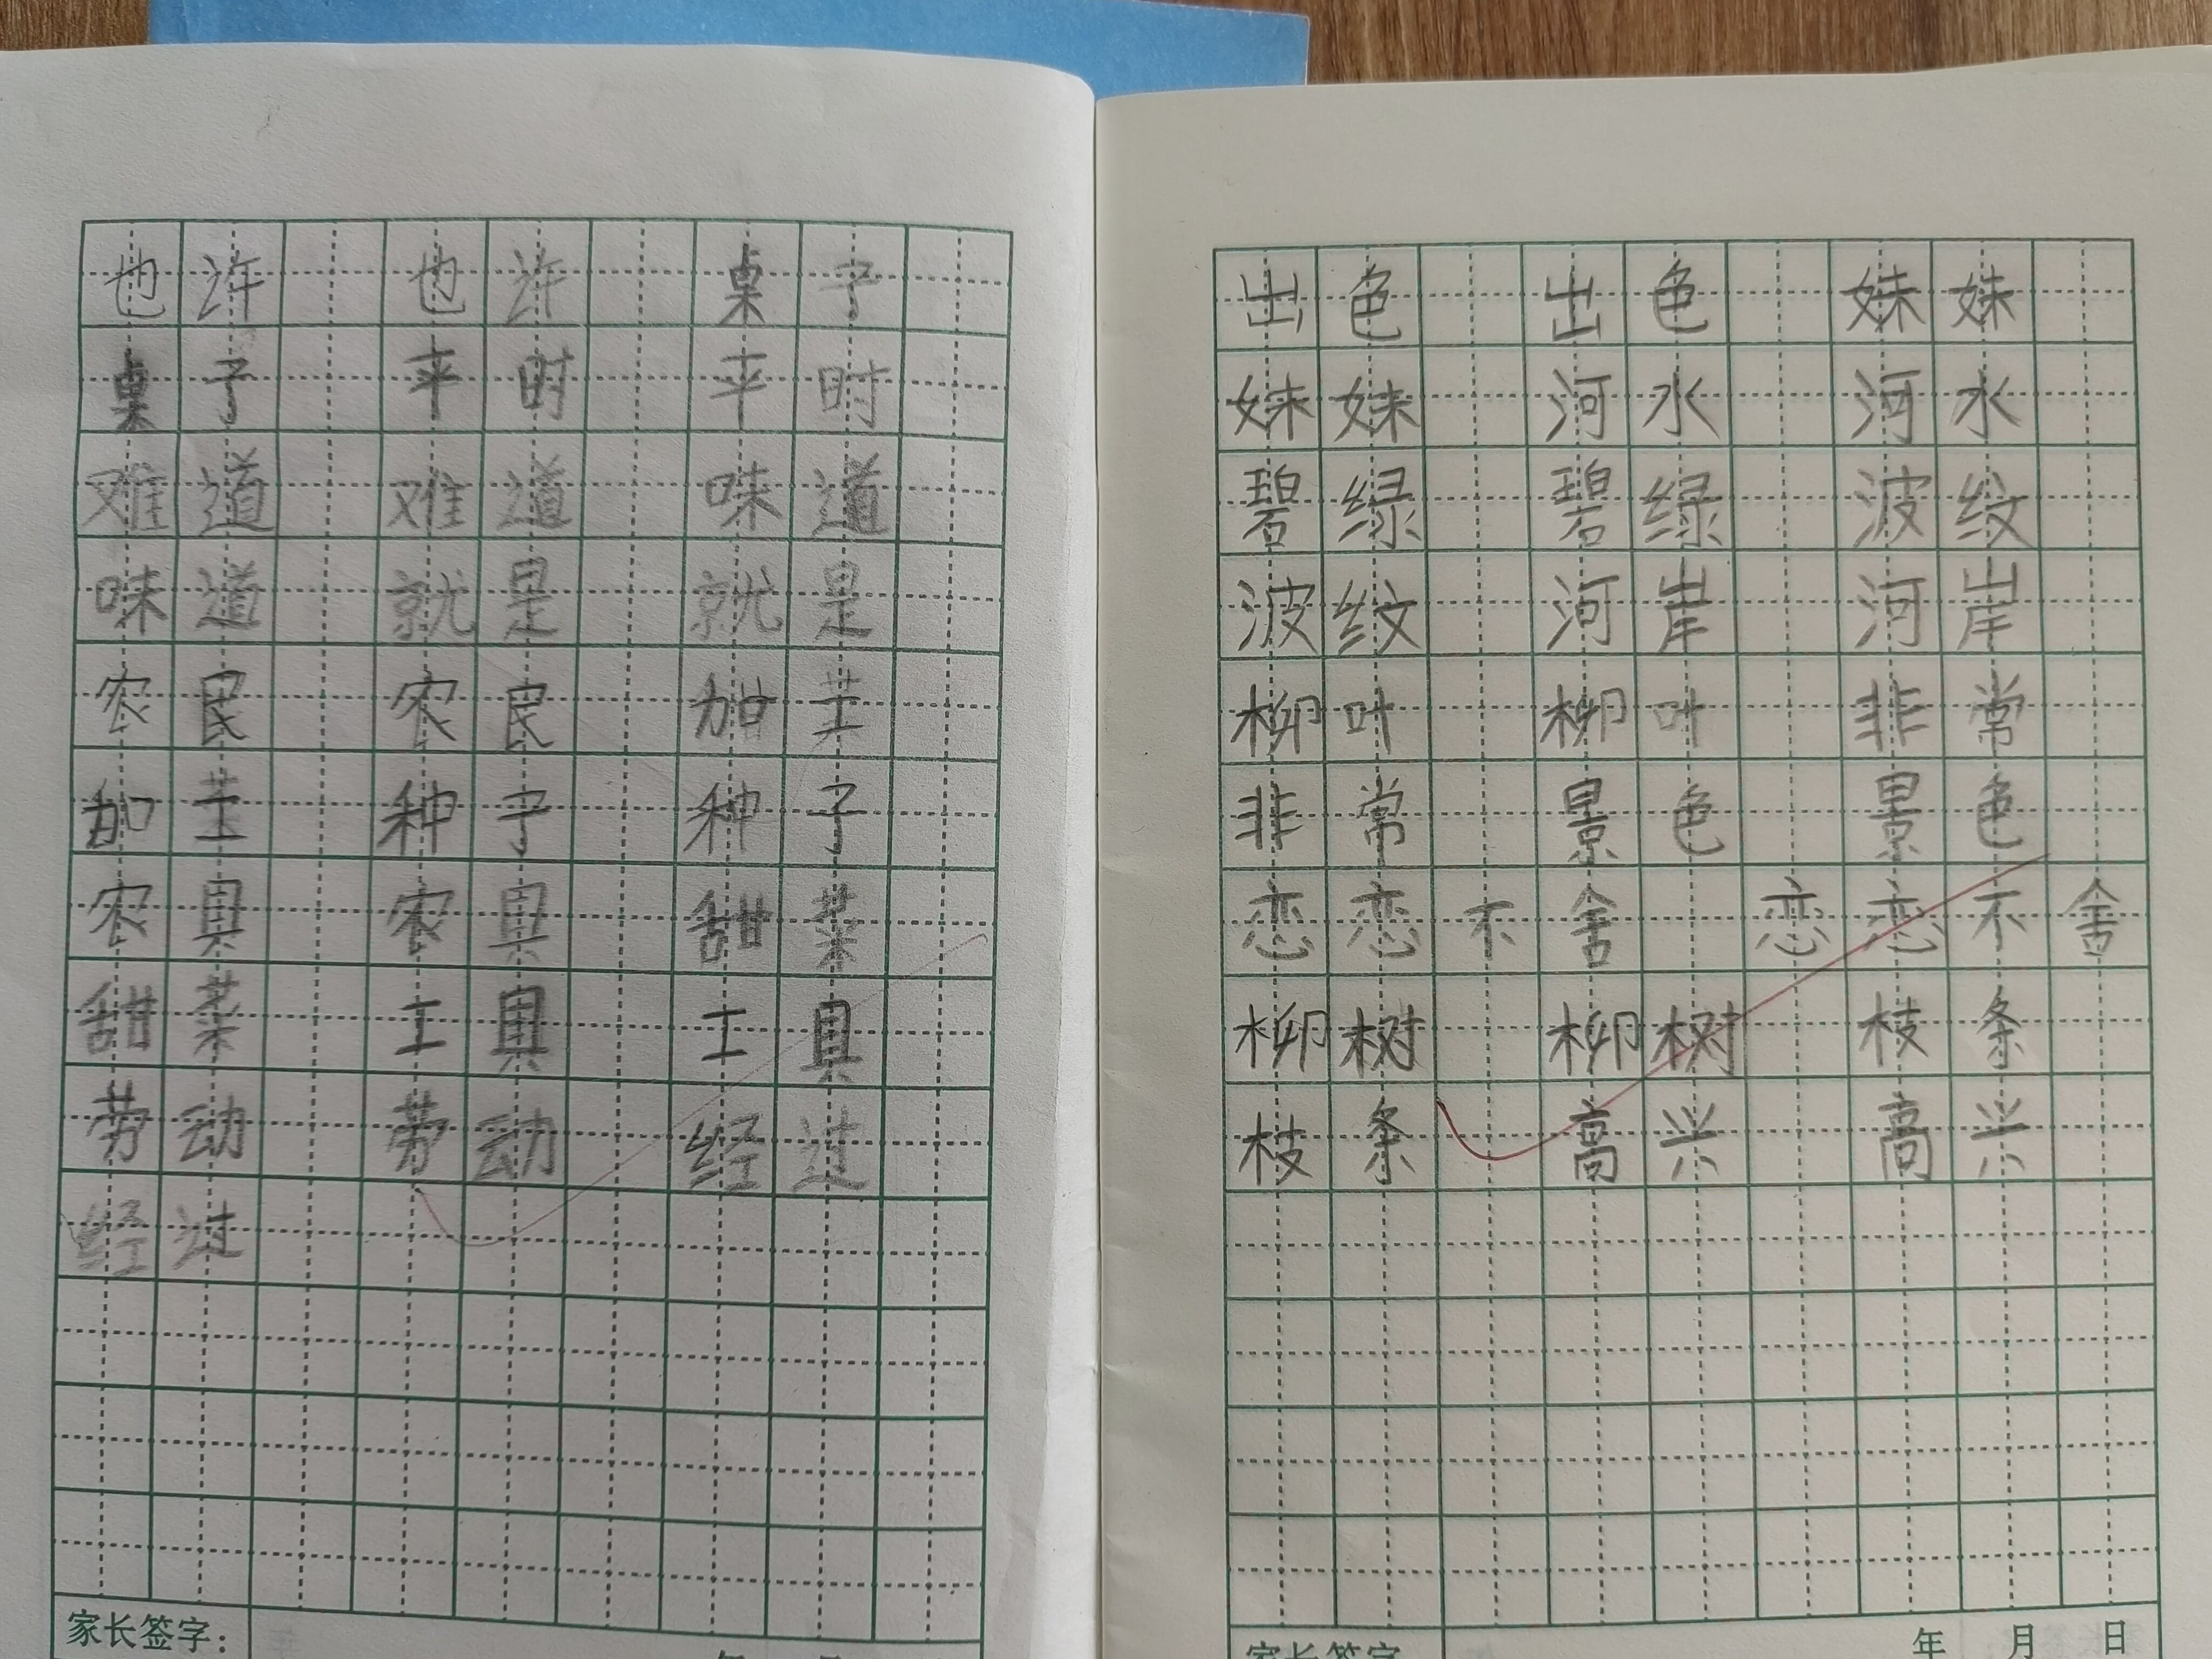 也许 也许 桌子
桌子 平时 平时
难道 难道 味道
味道 就是 就是
农民 农民 加工
加工 种子 种子
农具 农具 甜菜
甜菜 工具 工具
劳动 劳动 经过
经过
家长签字：
出色 出色 妹妹
妹妹 河水 河水
碧绿 碧绿 波纹
波纹 河岸 河岸
柳叶 柳叶 非常
非常 景色 景色
恋恋不舍 恋恋不舍
柳树 柳树 枝条
枝条 高兴 高兴
家长签字 年 月 日